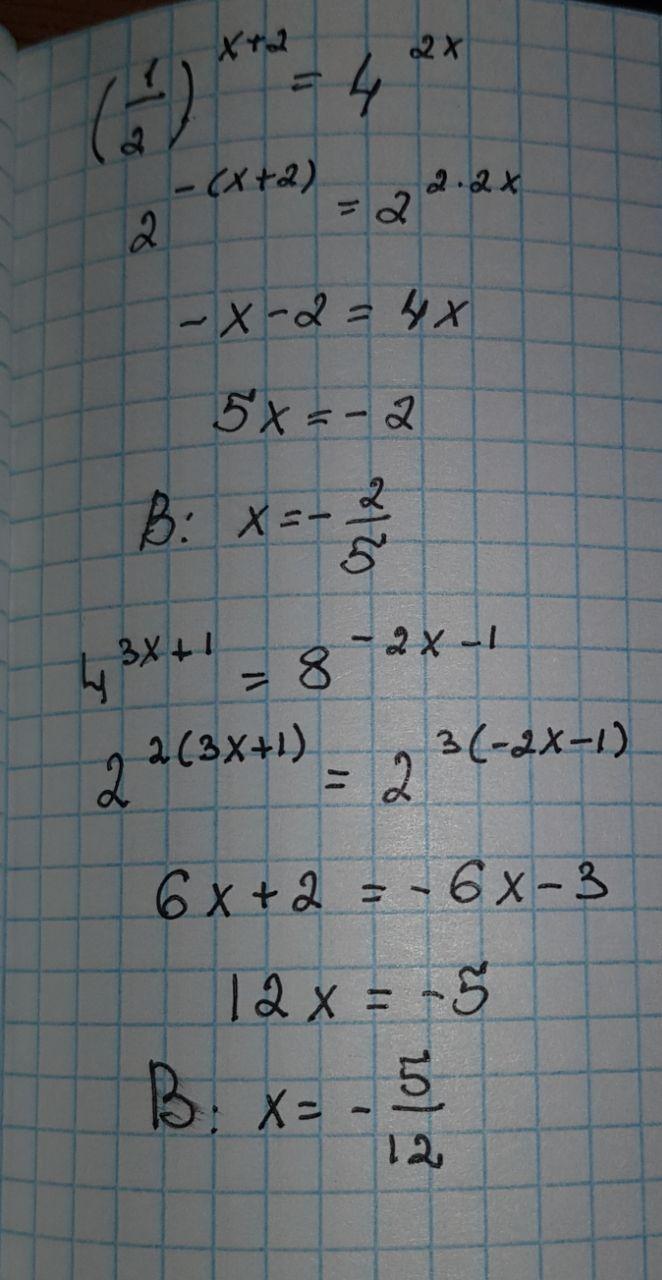 (1/2)^(x+2) = 4^(2x)
2^(-(x+2)) = 2^(2·2x)
-x-2 = 4x
5x = -2
В: x = -2/5
4^(3x+1) = 8^(-2x-1)
2^(2(3x+1)) = 2^(3(-2x-1))
6x+2 = -6x-3
12x = -5
В: x = -5/12